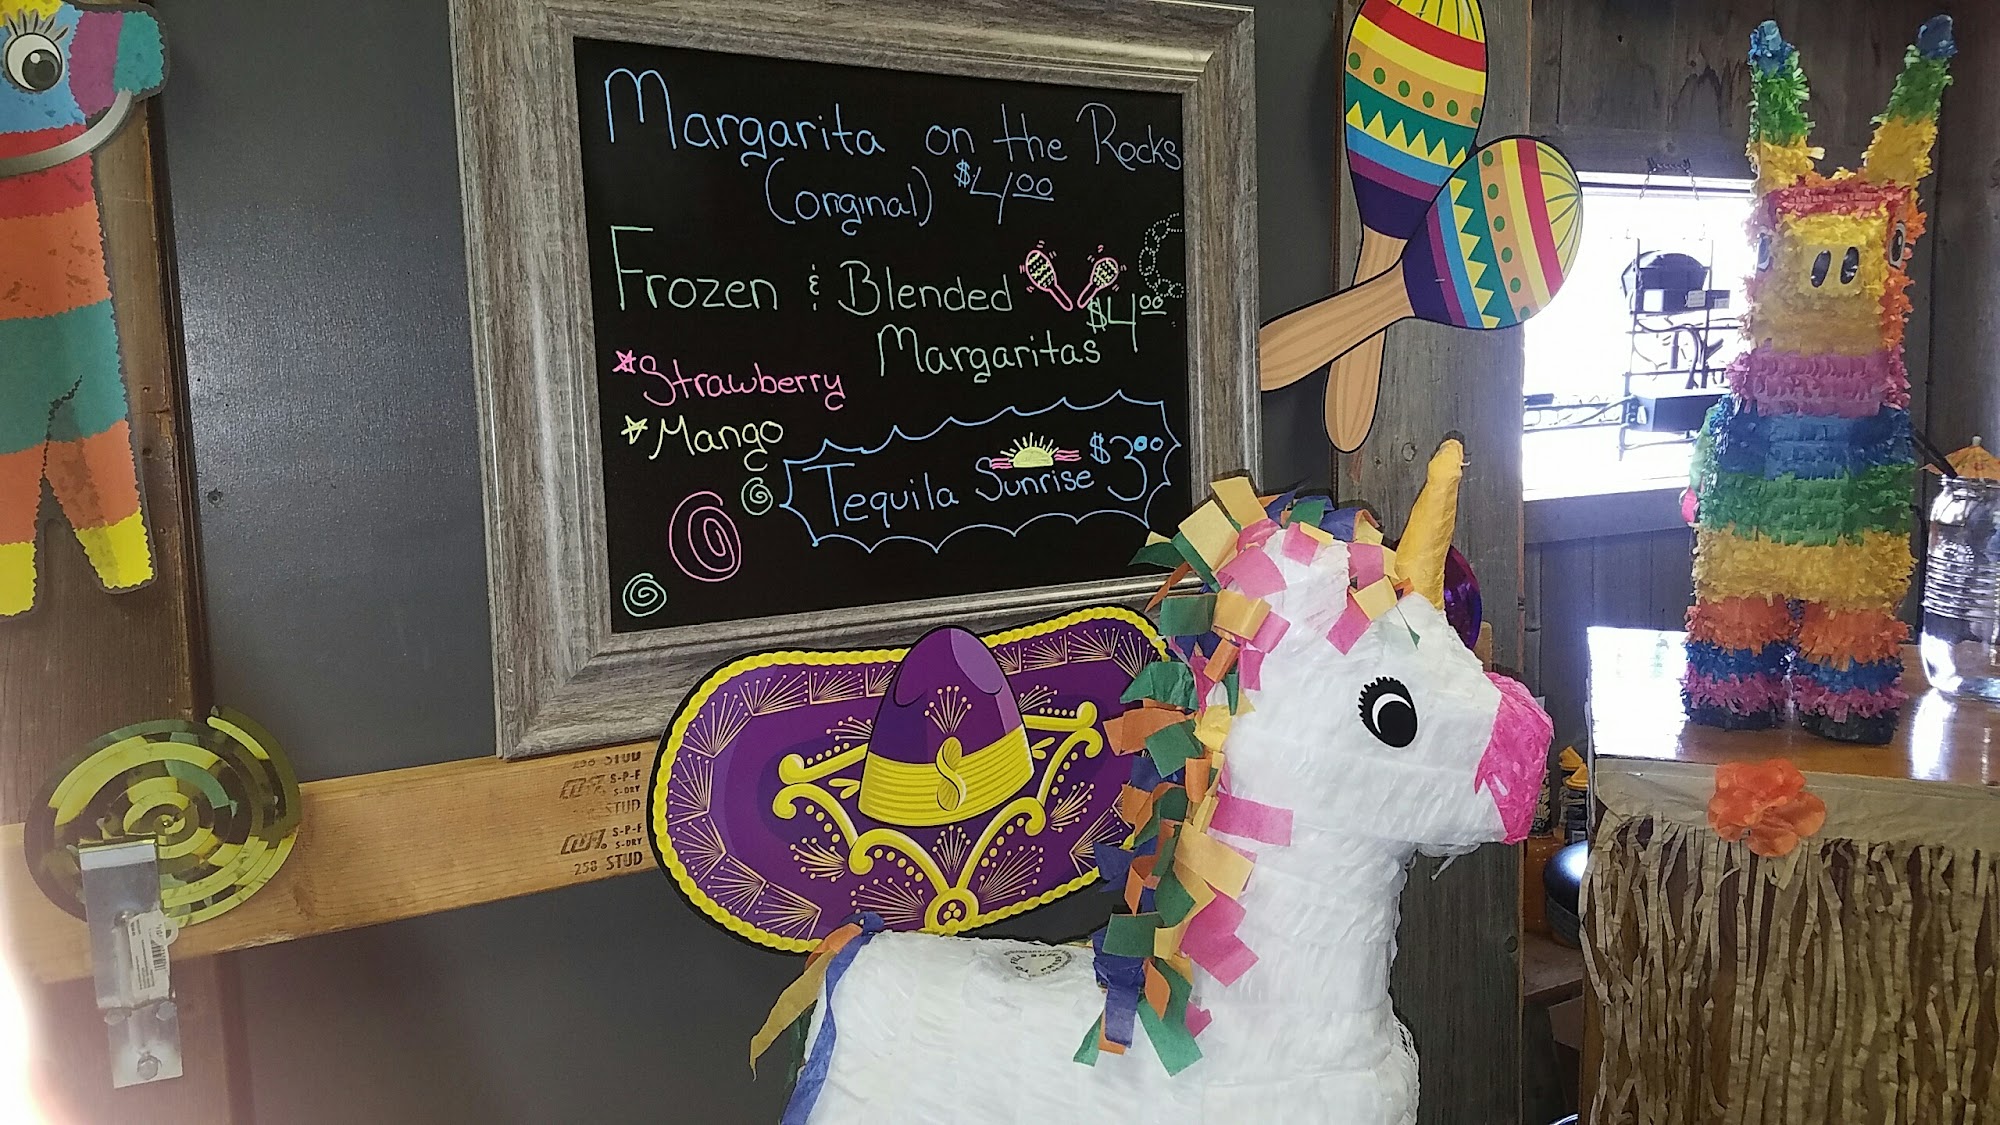 Margarita on the Rocks
(original) $4.00
Frozen & Blended
Margaritas $4.00
*Strawberry
*Mango
Tequila Sunrise $3.00
258 STUD
S-P-F
S-DRY
STUD
S-P-F
S-DRY
258 STUD